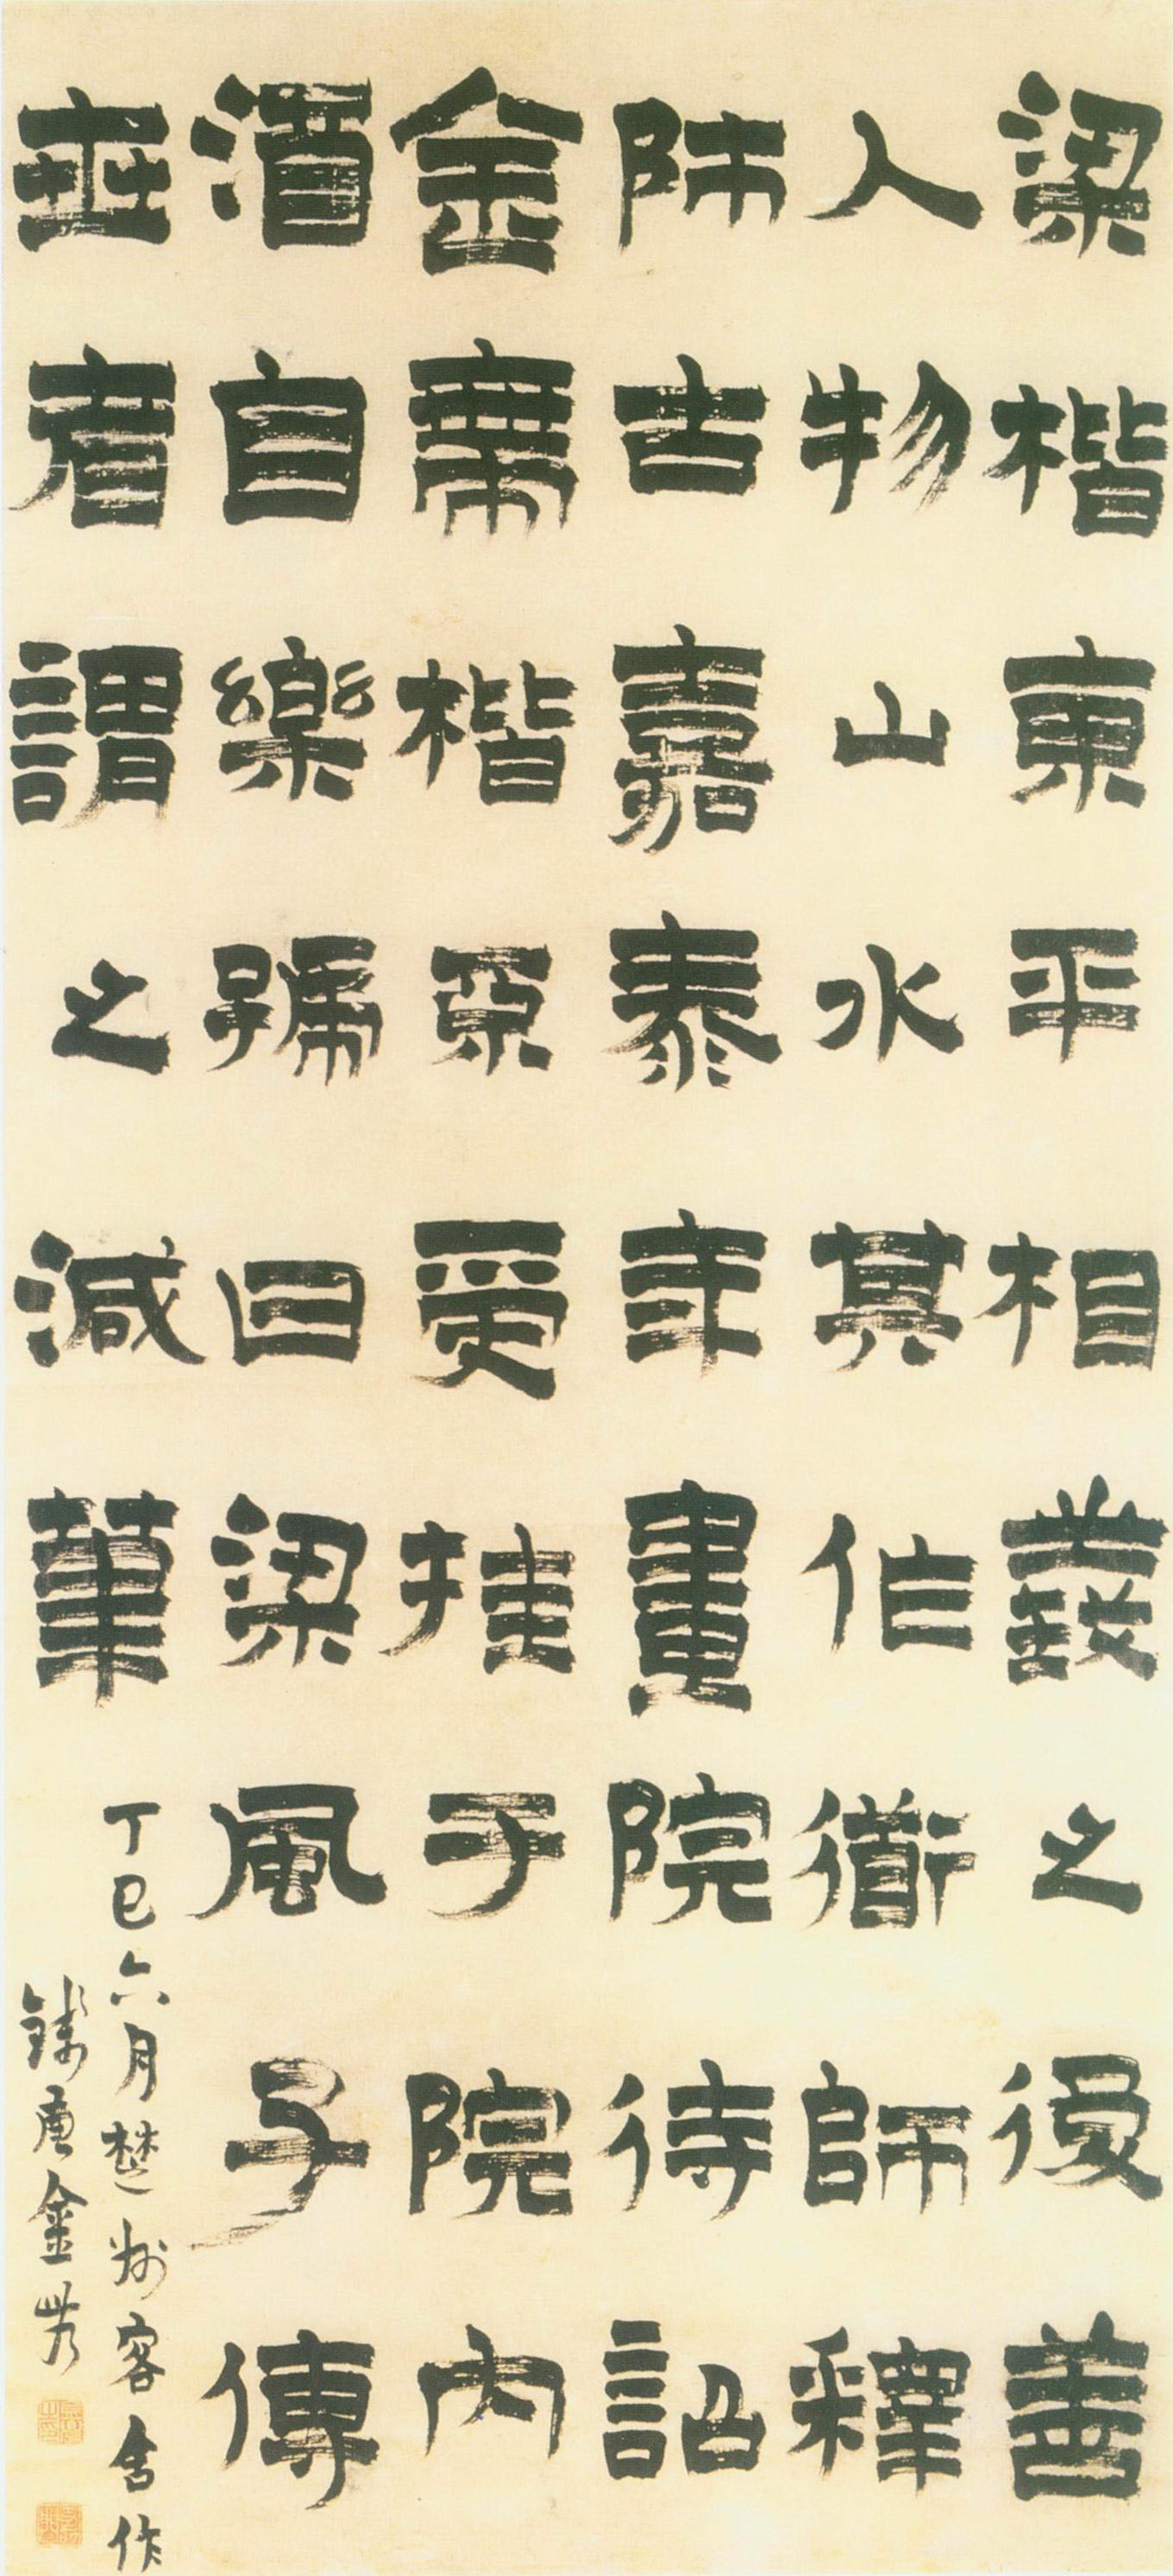 梁楷東平相羲之後善
人物山水其作衟師釋
師古嘉泰年畫院待詔
金帶楷
不受挂于院內
酒自樂號曰梁風子傳
世者謂之減筆
丁巳六月楚州客舍作
錢唐金農